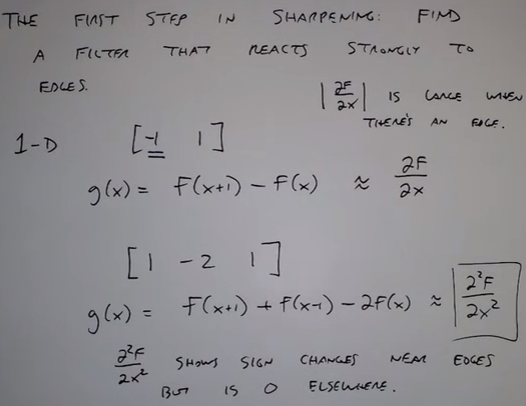 THE FIRST STEP IN SHARPENING: FIND
A FILTER THAT REACTS STRONGLY TO
EDGES.
|∂F/∂x| IS LARGE WHEN
THERE'S AN EDGE.
1-D [-1 1]
g(x) = F(x+1) - F(x) ≈ ∂F/∂x
[1 -2 1]
g(x) = F(x+1) + F(x-1) - 2F(x) ≈ ∂²F/∂x²
∂²F/∂x² SHOWS SIGN CHANGES NEAR EDGES
BUT IS 0 ELSEWHERE.